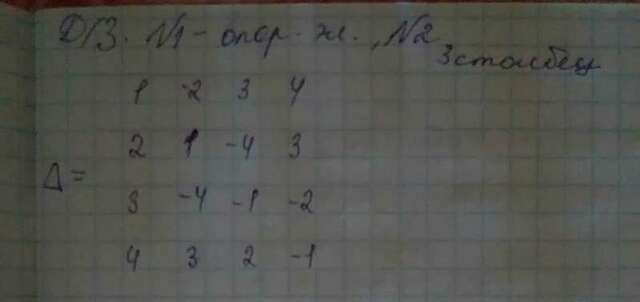 Д/З. №1 - опор. ж., №2
3 столбец
1 2 3 4
2 1 -4 3
Δ=
3 -4 -1 -2
4 3 2 -1